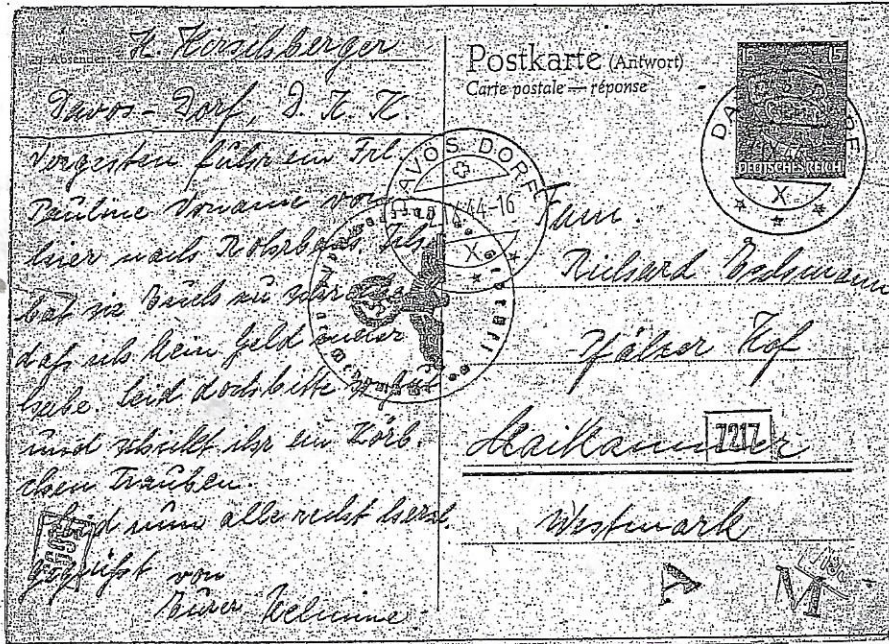 Absender: H. Hirschberger
Davos-Dorf, D. K. K.
Vorgestern fuhr ein Frl.
Pauline von
hier nach Rohrbach. Ich
bat sie Euch zu
daß ich kein Geld
habe. Seid doch bitte so gut
und schickt ihr ein Körb-
chen Trauben.
Seid nun alle recht herzl.
gegrüßt von
Eurer
Postkarte (Antwort)
Carte postale — réponse
15 15
DEUTSCHES REICH
DAVOS DORF
44-16
X
X
Fam.
Richard
Pfälzer Hof
Maikammer
7217
Westmark
A
M